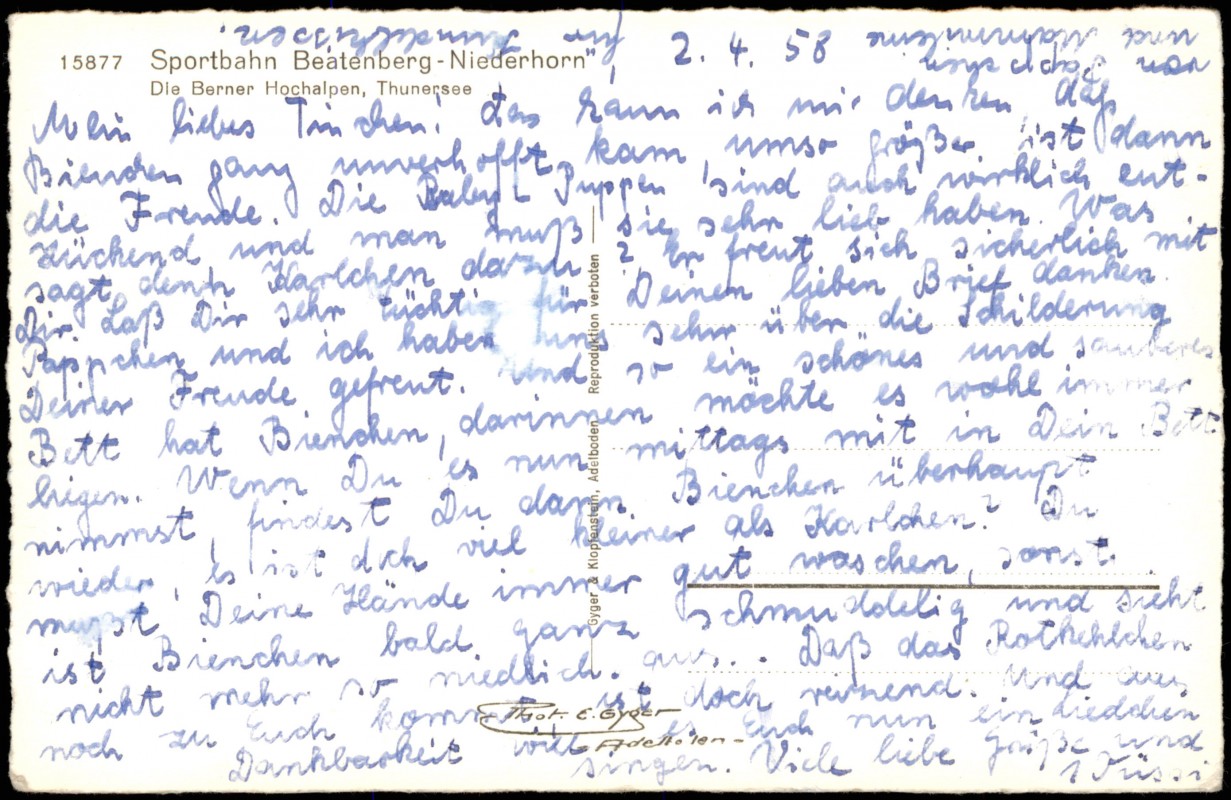 15877 Sportbahn Beatenberg-Niederhorn
Die Berner Hochalpen, Thunersee
2. 4. 58
Mein liebes Tinchen! Das kann ich mir denken daß
Bienchen ganz unverhofft kam, umso größer ist dann
die Freude. Die Baby-Puppen sind auch wirklich ent-
zückend und man muß sie sehr lieb haben. Was
sagt denn Karlchen dazu? Er freut sich sicherlich mit
Dir. Laß Dir sehr tüchtig für Deinen lieben Brief danken.
Päppchen und ich haben uns sehr über die Schilderung
Deiner Freude gefreut. Und so ein schönes und sauberes
Bett hat Bienchen, darinnen möchte es wohl immer
liegen. Wenn Du es nun mittags mit in Dein Bett
nimmst, findest Du dann Bienchen überhaupt
wieder, es ist doch viel kleiner als Karlchen? Du
mußt Deine Hände immer gut waschen, sonst
ist Bienchen bald ganz schmuddelig und sieht
nicht mehr so niedlich aus. Daß das Rotkehlchen
noch zu Euch kommt ist doch reizend. Und aus
Dankbarkeit will es Euch nun ein Liedchen
singen. Viele liebe Grüße und
1 Küssi
von Päppchen
und
Gyger & Klopfenstein, Adelboden Reproduktion verboten
Phot. E. Gyger
Adelboden